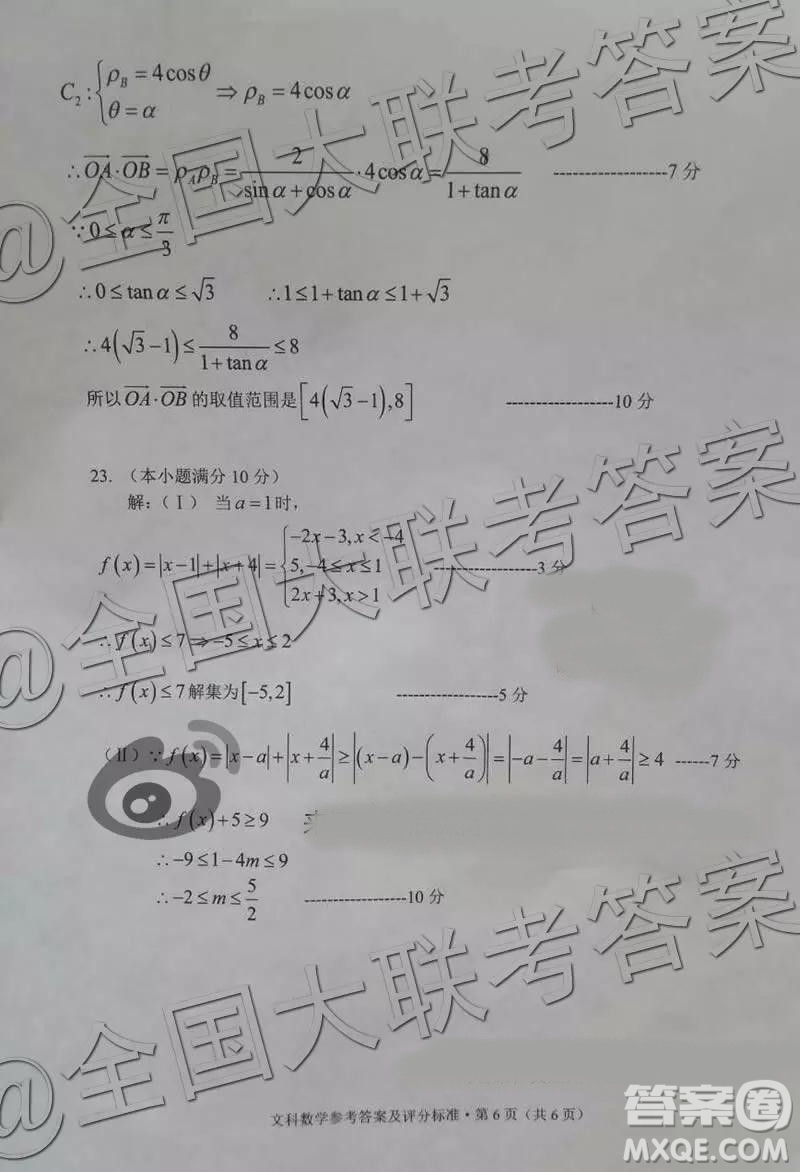 C₂:{ρ_B=4cosθ
θ=α ⇒ρ_B=4cosα
∴OA·OB=ρ_Aρ_B=2/(sinα+cosα)·4cosα=8/(1+tanα) -------------------7分
∵0≤α≤π/3
∴0≤tanα≤√3 ∴1≤1+tanα≤1+√3
∴4(√3−1)≤8/(1+tanα)≤8
所以OA·OB的取值范围是[4(√3−1),8] ------------------10分
23. （本小题满分10分）
解：（Ⅰ） 当a=1时，
f(x)=|x−1|+|x+4|={−2x−3,x<−4
5,−4≤x≤1
2x+3,x>1 -----------------3分
∴f(x)≤7⇒−5≤x≤2
∴f(x)≤7解集为[−5,2] -----------------5分
（Ⅱ）∵f(x)=|x−a|+|x+4/a|≥|(x−a)−(x+4/a)|=|−a−4/a|=|a+4/a|≥4 ------7分
∴f(x)+5≥9
∴−9≤1−4m≤9
∴−2≤m≤5/2 -----------------10分
文科数学参考答案及评分标准·第6页（共6页）
@全国大联考答案
@全国大联考答案
@全国大联考答案
答案圈
MXQE.COM